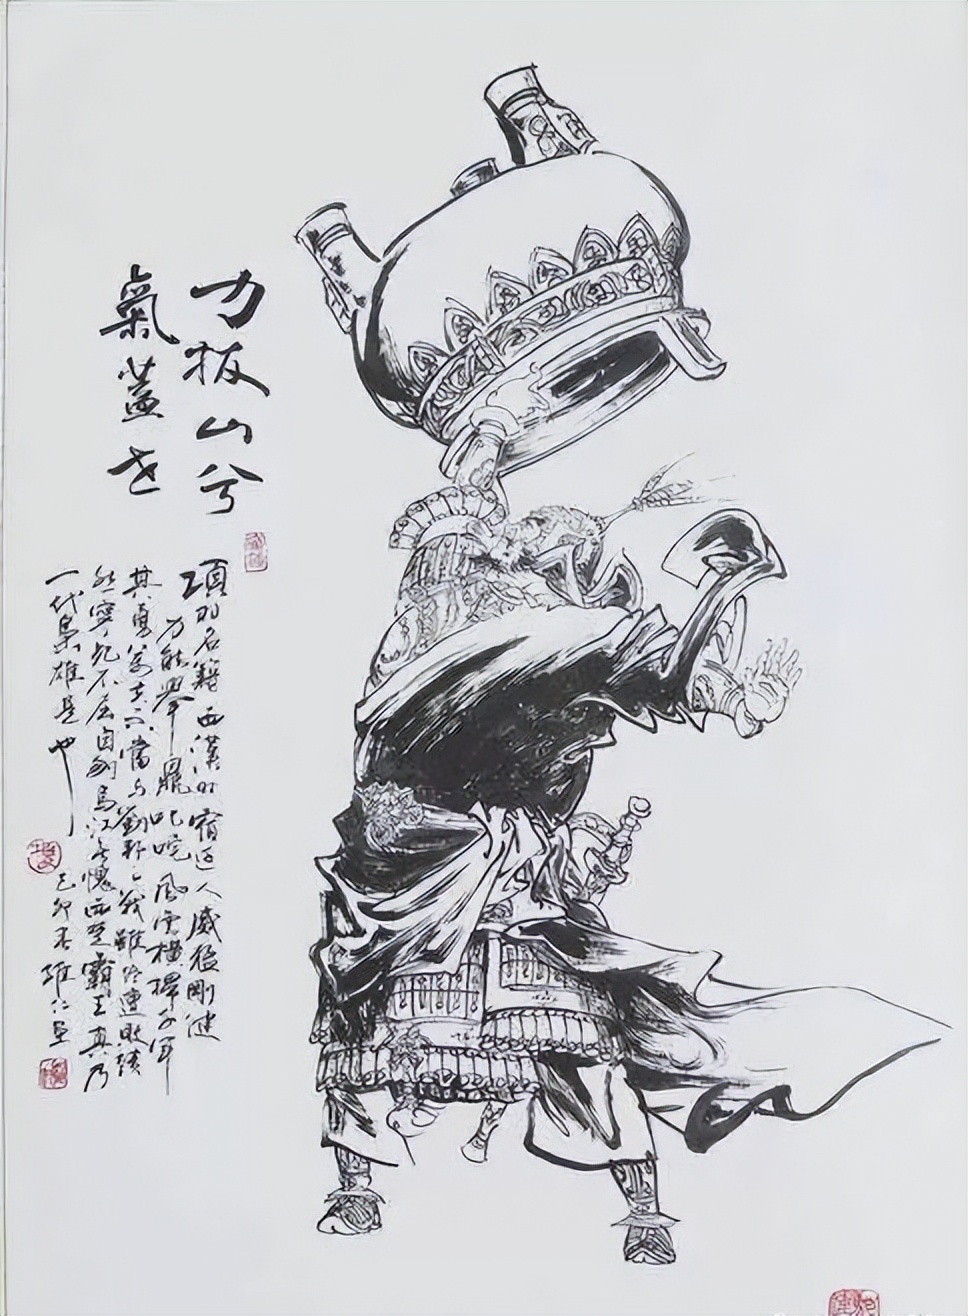 力拔山兮
氣蓋世
項羽名籍西漢时宿迁人威猛剛健
力能舉鼎叱咤風雲橫掃千軍
其勇萬夫不當与劉邦之戰雖終遭敗績
然寧死不屈自刎烏江無愧西楚霸王真乃
一代梟雄是也
己卯 維仁畫